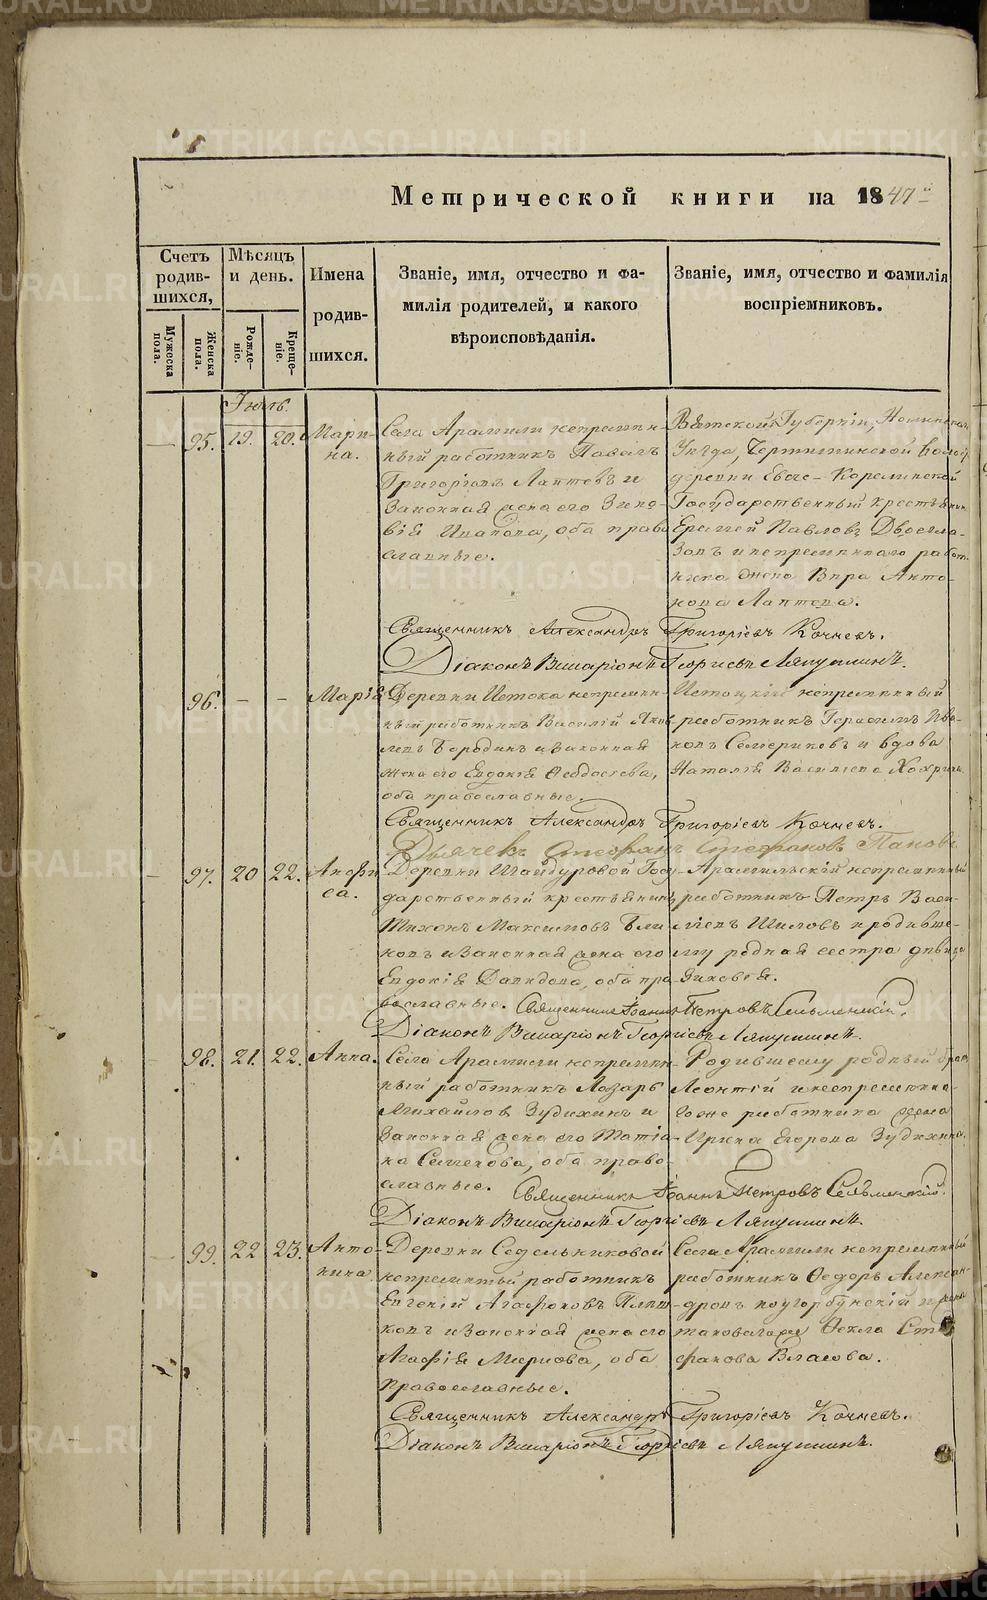 METRIKI.GASO-URAL.RU
Метрической книги на 1847й
Счетъ родив-шихся,
Мѣсяцъ и день.
Имена родив-шихся.
Званіе, имя, отчество и фа-
милія родителей, и какого
вѣроисповѣданія.
Званіе, имя, отчество и фамилія
воспріемниковъ.
Мужеска пола.
Женска пола.
Рожде-ніе.
Креще-ніе.
Іюль.
95. 19. 20. Мари-
на.
Села Арамили непремѣн-
ный работникъ Павелъ
Григорьевъ Лаптевъ и
Законная жена его Зино-
вія Иванова, оба право
славные.
Вятской Губерніи,
Уѣзда,
деревни
Государственный крестьянин
Еремей Павловъ Двоегла-
зовъ и непремѣннаго работ-
ника жена Вѣра Анто-
нова Лаптева.
Священникъ Александръ Григоріевъ Кочневъ.
Діаконъ Виссаріонъ Георгіевъ Ляпустинъ.
96. – – Марія
Деревни Истока непремѣн-
ный работникъ Василій Яков
левъ Бородинъ и Законная
жена его Евдокія Ѳеодосіева,
оба православные.
Истоцкій непремѣнный
работникъ Герасимъ Ива-
новъ Семериковъ и вдова
Наталія Васильева
Священникъ Александръ Григоріевъ Кочневъ.
Дьячекъ Стефанъ Стефановъ Поповъ
97. 20 22. Анфи
са.
Деревни Шайдуровой Госу-
дарственный крестьянинъ
Тихонъ Максимовъ Бли
новъ и Законная жена его
Евдокія Давидова, оба пра-
вославные.
Арамильскій непремѣнный
работникъ Петръ Васи-
льевъ Шиловъ и родивше-
муся родная сестра дѣвица
Зиновія.
Священникъ Іоаннъ Петровъ Сельменскій.
Діаконъ Виссаріонъ Георгіевъ Ляпустинъ.
98. 21. 22. Анна.
Села Арамили непремѣн-
ный работникъ Лазарь
Михайловъ Зудихинъ и
Законная жена его Татія-
на Семенова, оба право-
славные.
Родившемуся родный братъ
Леонтій и непремѣнна-
го же работника жена
Ирина Егорова Зудихина.
Священникъ Іоаннъ Петровъ Сельменскій.
Діаконъ Виссаріонъ Георгіевъ Ляпустинъ.
99. 22 23. Анто-
нина
Деревни Седельниковой
непремѣнный работникъ
Евгеній Агафоновъ
и Законная жена его
Агафія Маркова, оба
Православные.
Села Арамили непремѣнный
работникъ Ѳедоръ Алексан-
дровъ и жена
Ѳекла Сте
фанова Власова.
Священникъ Александръ Григоріевъ Кочневъ.
Діаконъ Виссаріонъ Георгіевъ Ляпустинъ.